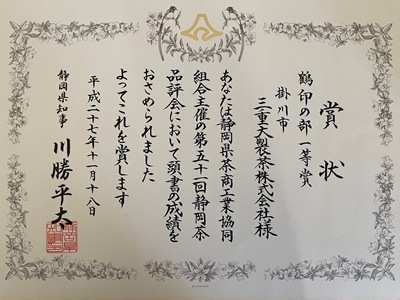 賞状
鶴印の部 一等賞
掛川市
三重大製茶株式会社様
あなたは静岡県茶商工業協同
組合主催の第五十一回静岡茶
品評会において頭書の成績を
おさめられました
よってこれを賞します
平成二十七年十一月十八日
静岡県知事 川勝平太